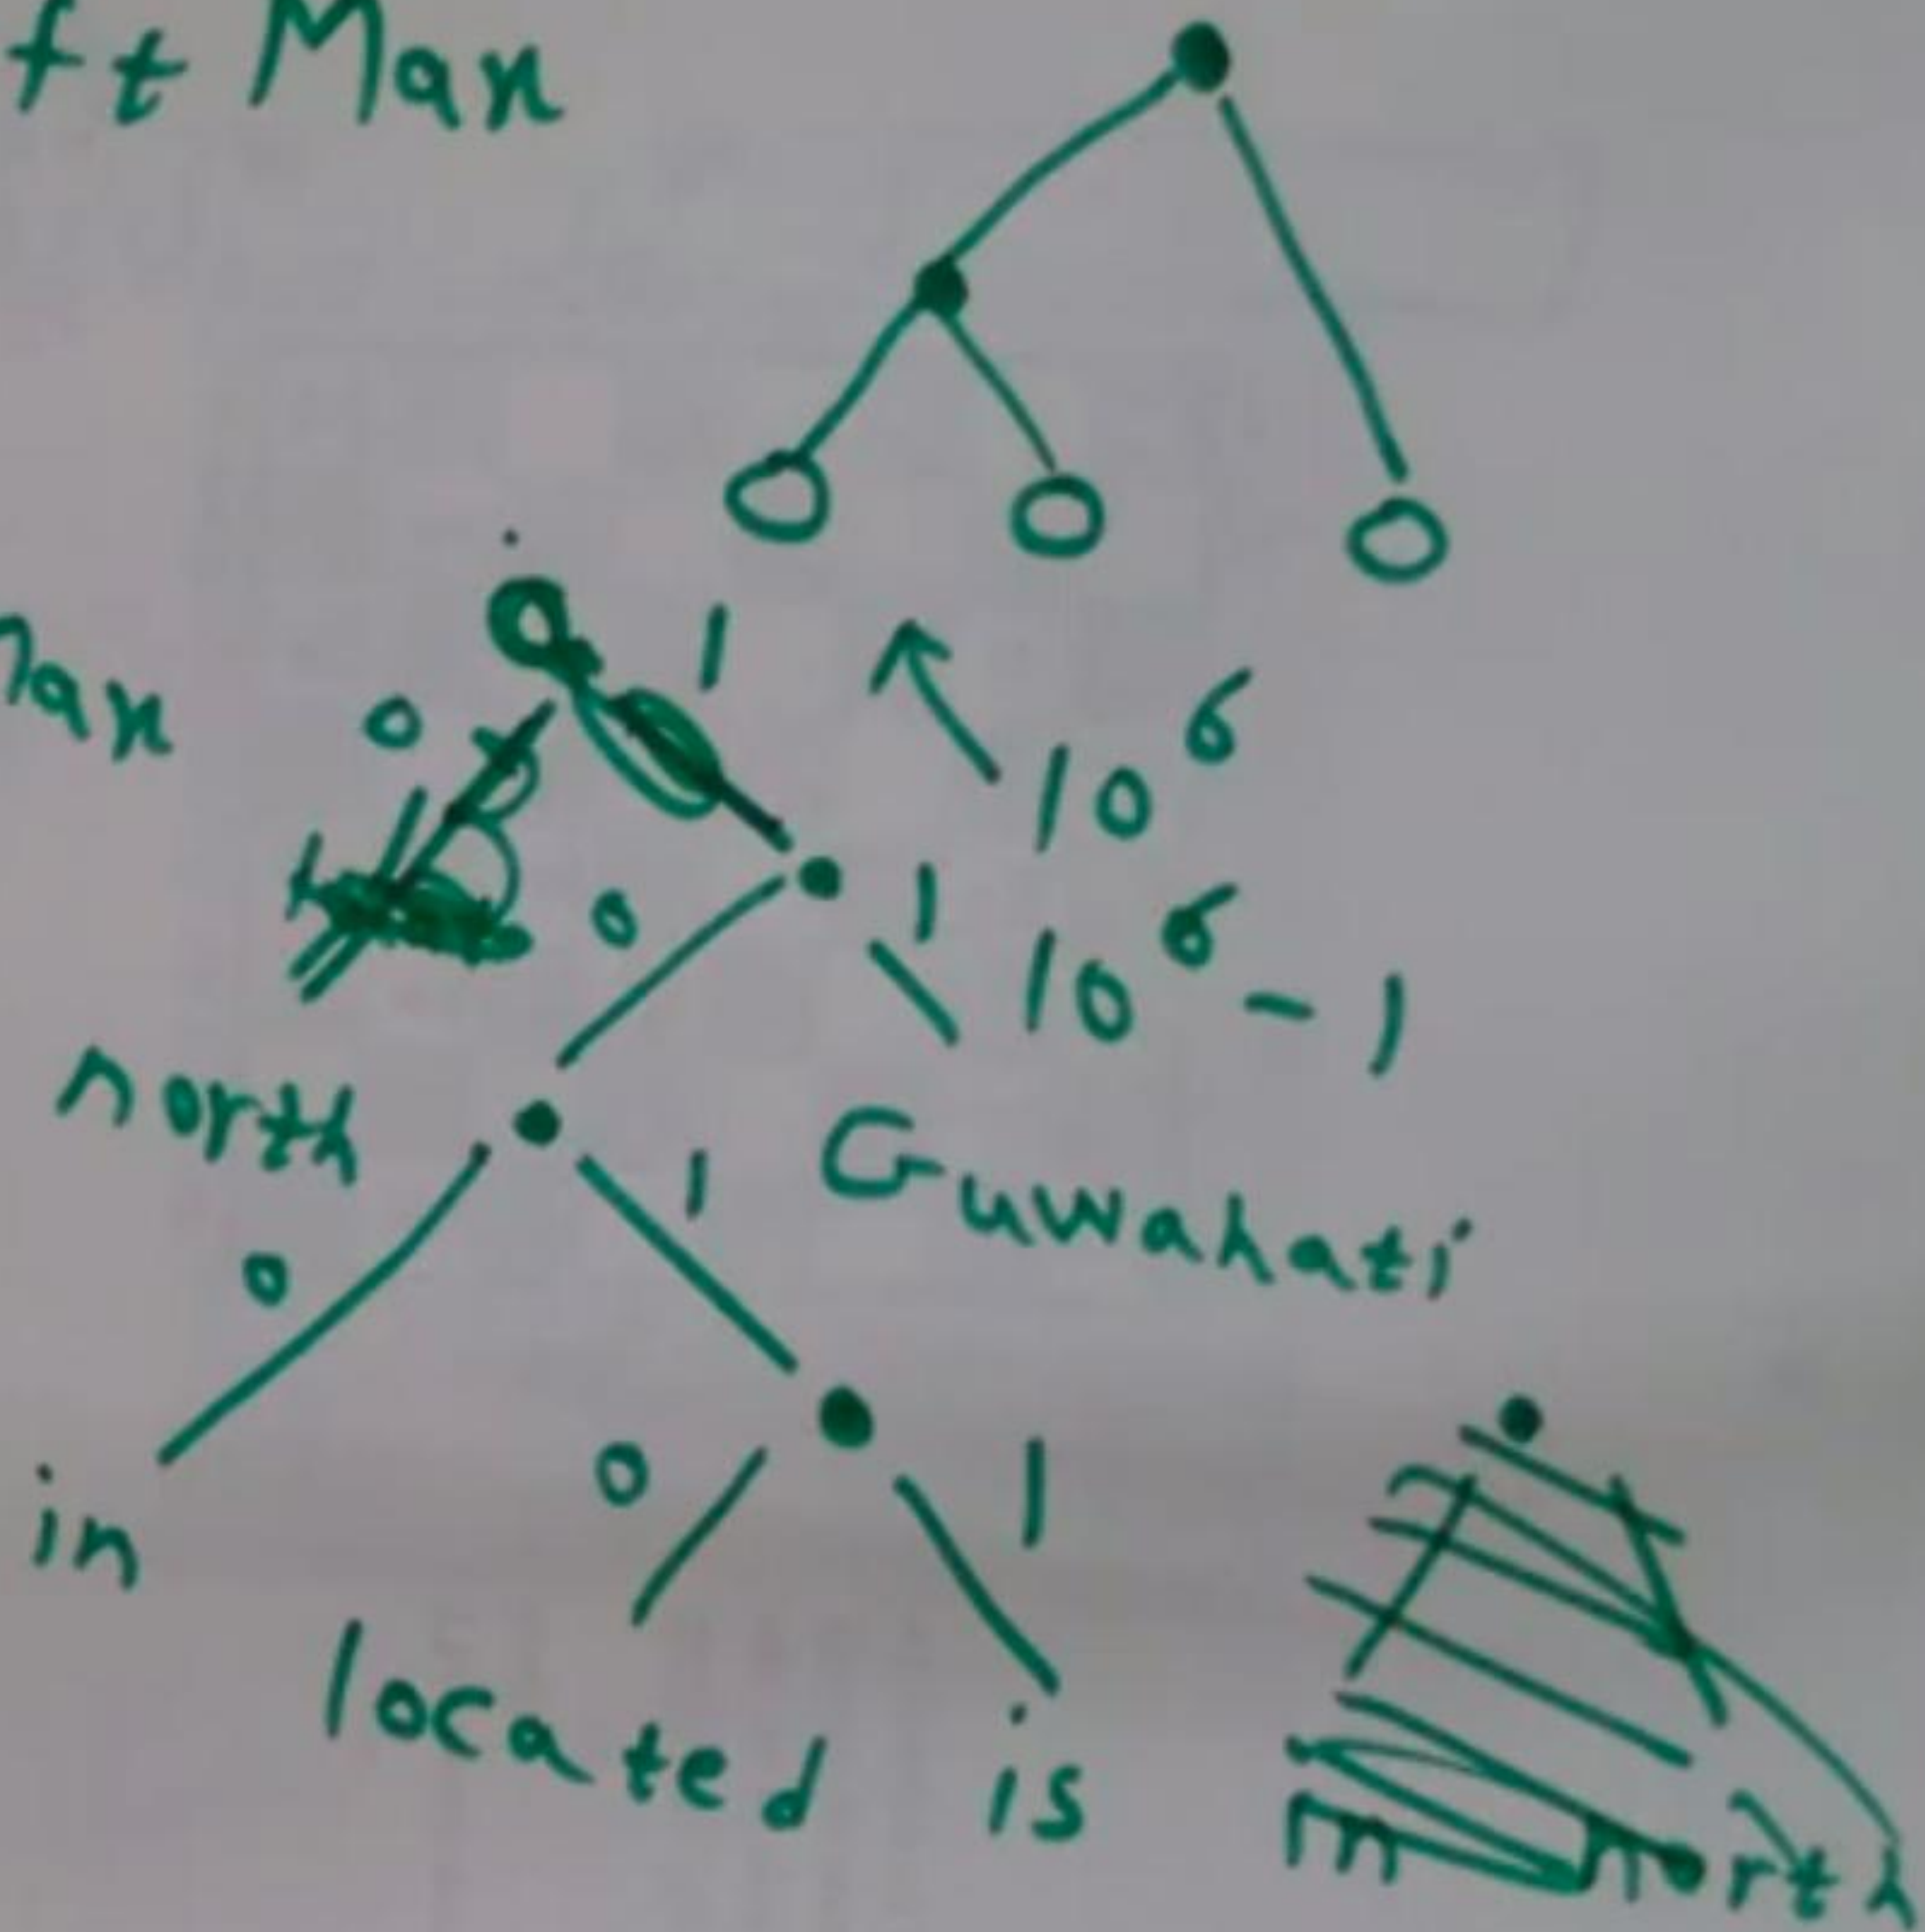 ft Max
1
0
10^6
max
0 1
10^6 - 1
north
1
Guwahati
0
in
0 1
located is
in north